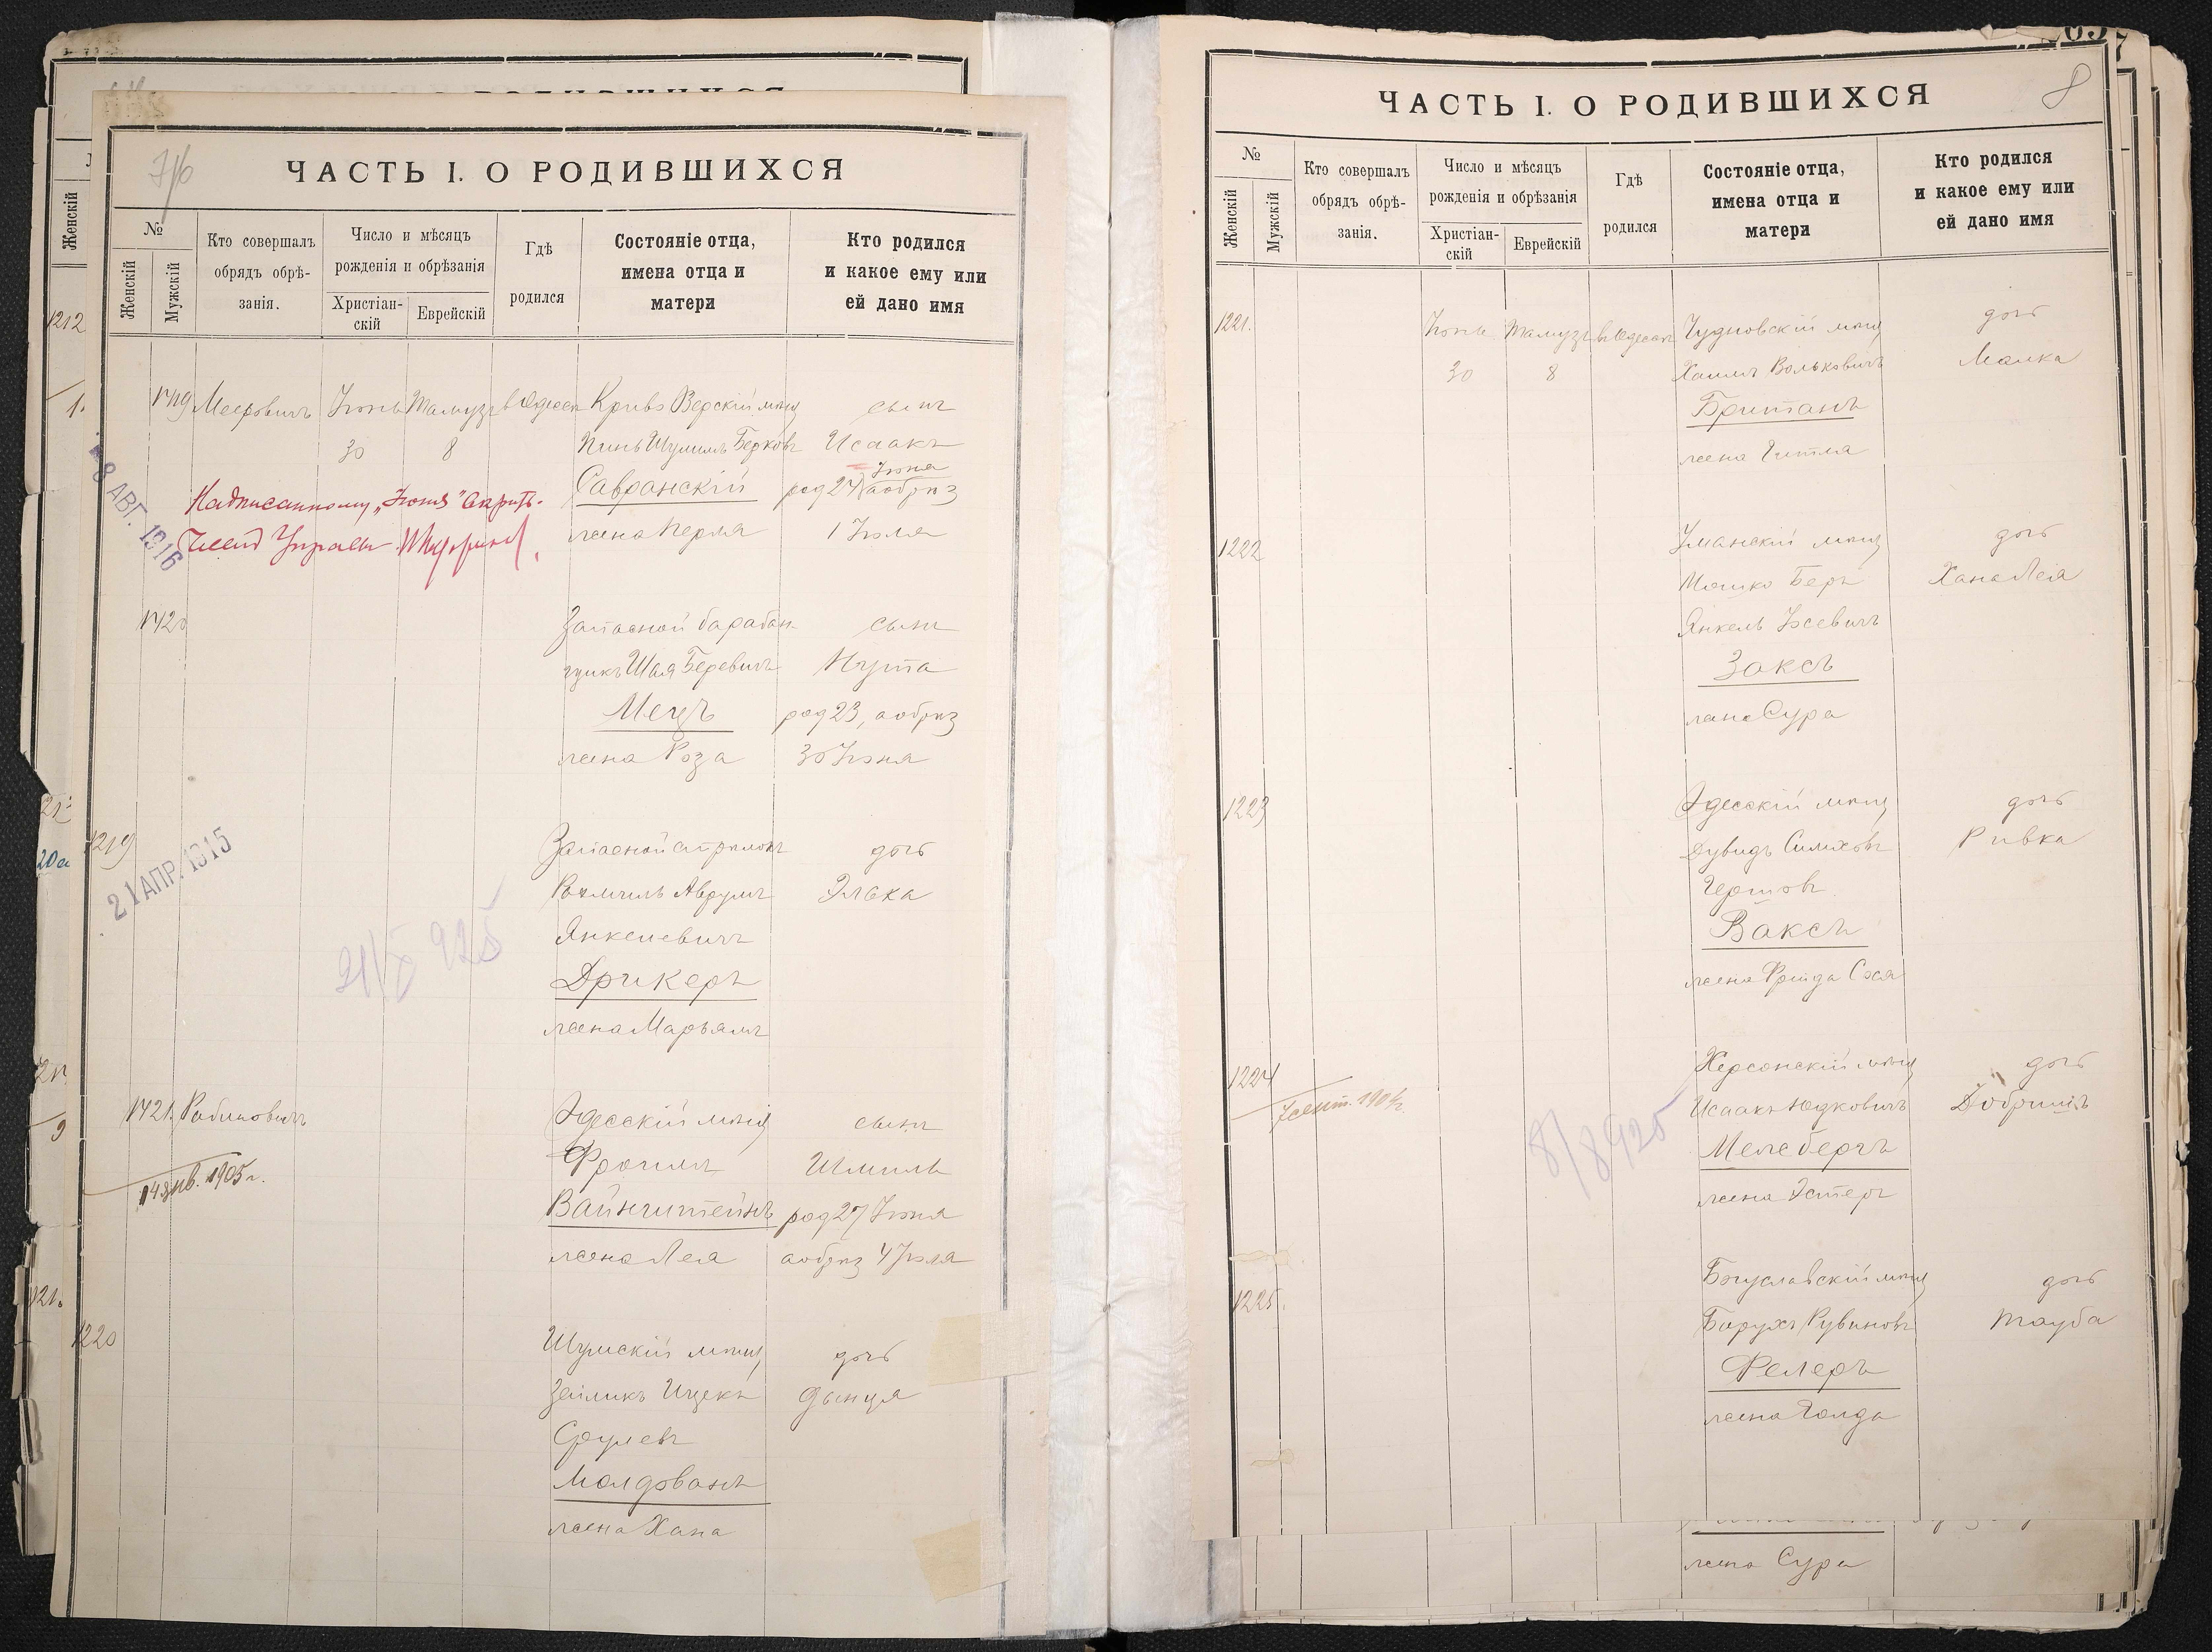 ЧАСТЬ I. О РОДИВШИХСЯ
№
Женскій
Мужскій
Кто совершалъ
обрядъ обрѣ-
занія.
Число и мѣсяцъ
рожденія и обрѣзанія
Христіан-
скій
Еврейскій
Гдѣ
родился
Состояніе отца,
имена отца и
матери
Кто родился
и какое ему или
ей дано имя
1212
Женскій
1419 Мееровичъ Іюнь Тамузъ в Одессѣ Криво Верскій мѣщ сынъ
30 8 Пинь Шулимъ Берковъ Исаакъ
Іюня
Савранскій род 24 а обрѣз
жена Перля 1 Іюля
Надписанному „Іюня"
Членъ Управы
8 АВГ. 1916
1420 Запасной барабан- сынъ
щикъ Шая Беревичъ Нута
Мецъ род 23, а обрѣз
жена Роза 30 Іюня
1219 Запасной стрѣлокъ дочь
21 АПР. 1915
Рахмиль Аврумъ Элька
Янкелевичъ
21/X 925
Дрикеръ
жена Марьямъ
1421. Рабиновичъ Одесскій мѣщ сынъ
Фроимъ Шмиль
14 янв. 1905 г.
Вайнштейнъ род 27 Іюня
жена Лея а обрѣз 4 Іюля
1220 Шумскій мѣщ дочь
Зейликъ Ицекъ Фынця
Срулевъ
Молдованъ
жена Хана
8
ЧАСТЬ I. О РОДИВШИХСЯ
№
Женскій
Мужскій
Кто совершалъ
обрядъ обрѣ-
занія.
Число и мѣсяцъ
рожденія и обрѣзанія
Христіан-
скій
Еврейскій
Гдѣ
родился
Состояніе отца,
имена отца и
матери
Кто родился
и какое ему или
ей дано имя
1221. Іюнь Тамузъ в Одессѣ Чудновскій мѣщ дочь
30 8 Хаимъ Вольковичъ Малка
Британъ
жена Гитля
1222 Уманскій мѣщ дочь
Мошко Беръ Хана Лея
Янкель Іосевичъ
Заксъ
жена Сура
1223 Одесскій мѣщ дочь
Дувидъ Симховъ Ривка
Гершовъ
Ваксъ
жена Фрейда Сося
1224 Херсонскій мѣщ дочь
7 сент. 1904 г.
Исаакъ Юдковичъ Добришъ
8/8 925
Мелебергъ
жена Эстеръ
1225. Богуславскій мѣщ дочь
Борухъ Рувиновъ Тауба
Фелеръ
жена Голда
жена Сура